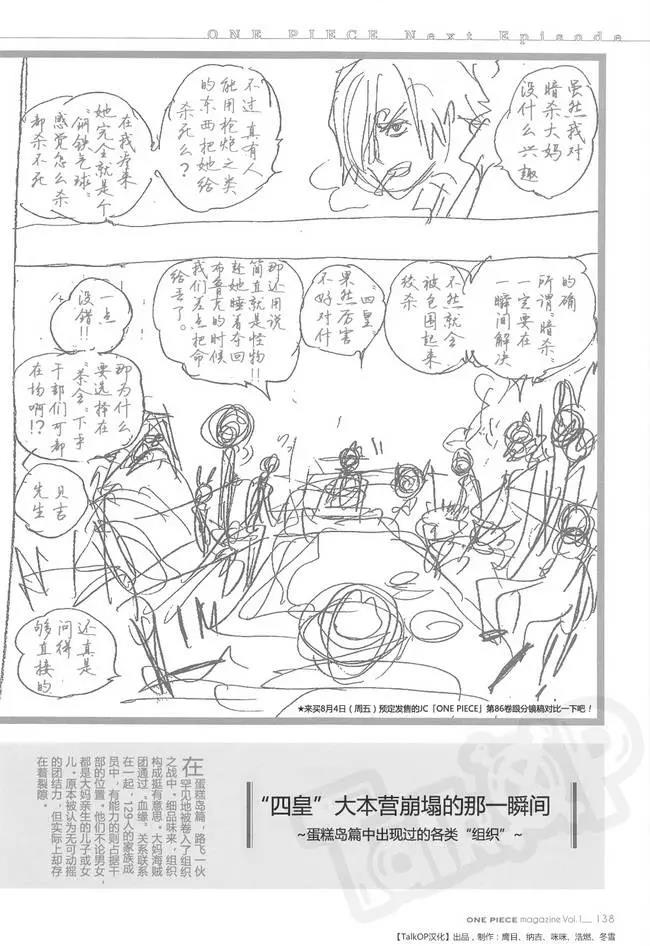 ONE PIECE Next Episode
虽然我对
暗杀大妈
没什么兴趣
不过真有人
能用枪炮之类
的东西把她给
杀死么？
在我看来
她完全就是个
“钢铁气球”
感觉怎么杀
都杀不死
的确
所谓“暗杀”
一定要在
一瞬间解决
不然就会
被包围起来
绞杀
四皇
果然厉害
不好对付
那还用说
简直就是怪物!!
趁她睡着夺回
布鲁克的时候
我们差点把命
给丢了。
一点
没错!!
那为什么
要选择在
“茶会”下手
干部们可都
在场啊!?
贝吉
先生
还真是
问得
够直接的
★来买8月4日（周五）预定发售的JC「ONE PIECE」第86卷跟分镜稿对比一下吧！
“四皇”大本营崩塌的那一瞬间
~蛋糕岛篇中出现过的各类“组织”~
在蛋糕岛篇，路飞一伙
罕见地被卷入了组织
之战中。细品味来，组织
构成挺有意思。大妈海贼
团通过“血缘”关系联系
在一起，129人的家族成
员中，有能力的则占据干
部的位置。他们不论男女，
都是大妈亲生的儿子或女
儿。原本被认为无可动摇
的团结力，但实际上却存
在着裂隙。
TalkOP
ONE PIECE magazine Vol.1__ 138
【TalkOP汉化】出品，制作：鹰目、纳吉、咪咪、浩燃、冬雪